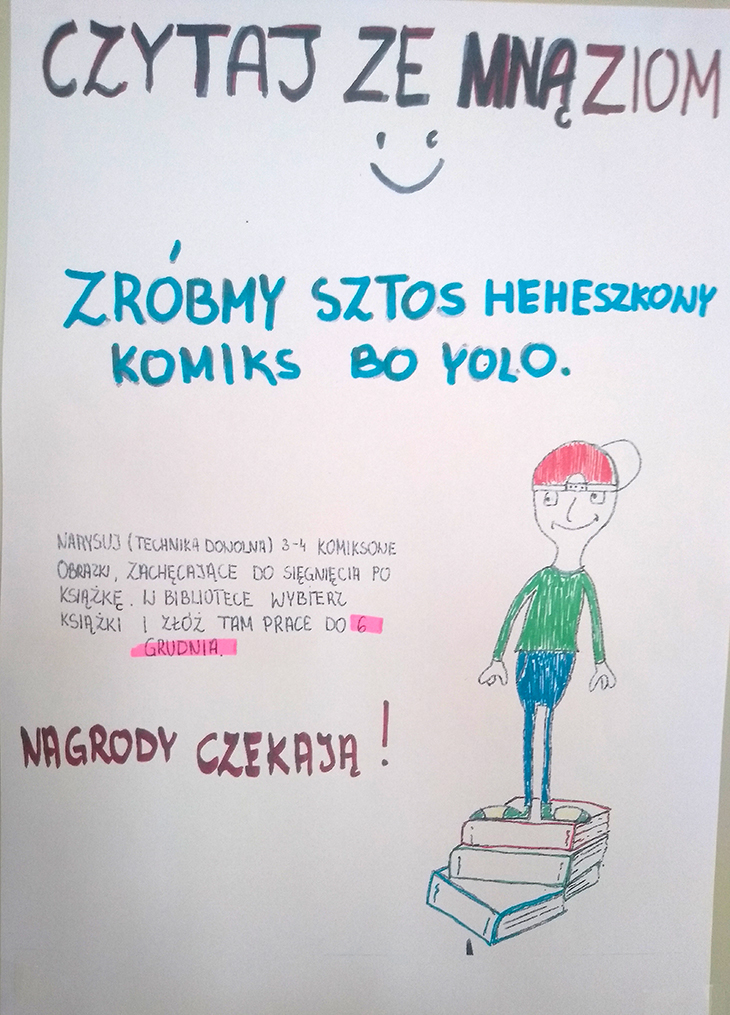 CZYTAJ ZE MNĄ ZIOM
ZRÓBMY SZTOS HEHESZKONY
KOMIKS BO YOLO.
NARYSUJ (TECHNIKA DOWOLNA) 3-4 KOMIKSONE
OBRAZKI, ZACHĘCAJĄCE DO SIĘGNIĘCIA PO
KSIĄŻKĘ. W BIBLIOTECE WYBIERZ
KSIĄŻKI I ZŁÓŻ TAM PRACE DO 6
GRUDNIA.
NAGRODY CZEKAJĄ!